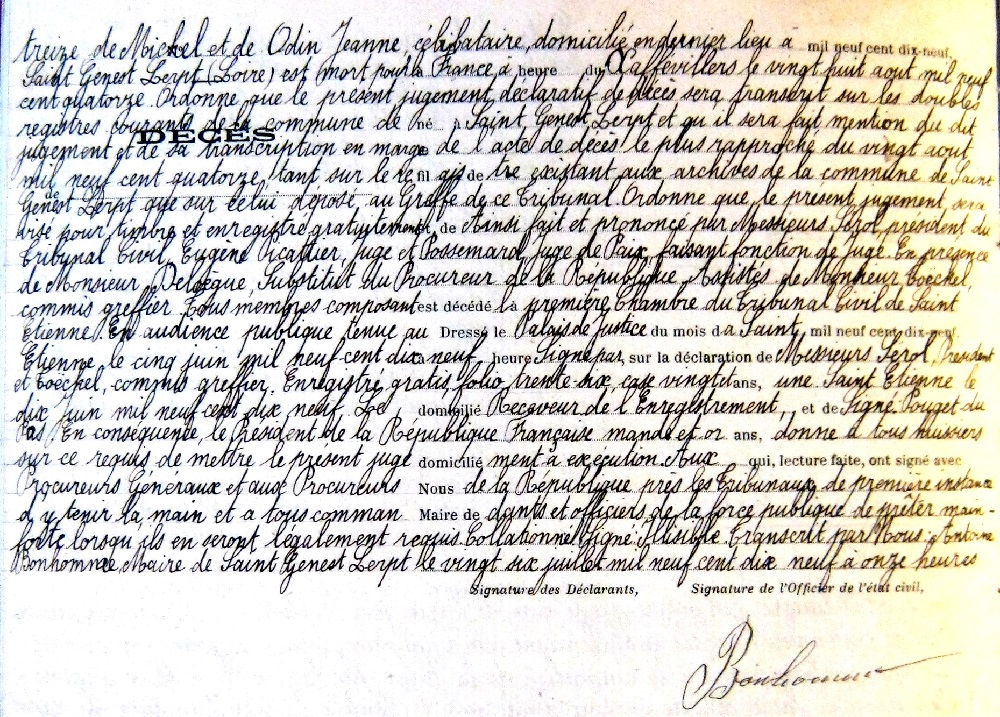 treize de Michel et de Odin Jeanne, célibataire, domicilié en dernier lieu à mil neuf cent dix-neuf,
Saint Genest Lerpt (Loire) est mort pour la France, à heure du Xaffévillers le vingt huit aout mil neuf
cent quatorze. Ordonne que le présent jugement déclaratif de décès sera transcrit sur les doubles
registres courants de la commune de né à Saint Genest Lerpt et qu'il sera fait mention du dit
DÉCÈS
jugement et de sa transcription en marge de l'acte de décès le plus rapproché du vingt aout
mil neuf cent quatorze, tant sur le re fil de tre existant aux archives de la commune de Saint
Genest Lerpt que sur celui déposé au Greffe de ce Tribunal. Ordonne que le présent jugement sera
visé pour timbre et enregistré gratuitement, de Ainsi fait et prononcé par Messieurs Serol, président du
Tribunal Civil, Eugène Picattier, juge et Possemard, Juge de Paix, faisant fonction de Juge. En présence
de Monsieur Delègue, Substitut du Procureur de la République, Assistés de Monsieur Boëchel,
commis greffier. Tous membres composant est décédé la première Chambre du Tribunal Civil de Saint
Etienne. En audience publique tenue au Dressé le Palais de Justice du mois d à Saint, mil neuf cent dix-neuf,
Etienne, le cinq juin mil neuf cent dix neuf, heure Signé par, sur la déclaration de Messieurs Serol, Président
et Boëchel, commis greffier. Enregistré gratis, folio trente-six, case vingt et ans, une Saint Etienne le
dix juin mil neuf cent dix neuf. Le domicilié Receveur de l'Enregistrement, et de Signé Pouget du
Pas. En conséquence, le Président de la République Française mande et or ans, donne à tous huissiers
sur ce requis de mettre le présent juge domicilié ment à exécution. Aux qui, lecture faite, ont signé avec
Procureurs Généraux et aux Procureurs Nous de la République près les Tribunaux de première instance
d'y tenir la main et à tous comman Maire de dants et officiers de la force publique de prêter main-
forte lorsqu'ils en seront légalement requis. Collationné Signé Illisible. Transcrit par Nous: Antoine
Bonhomme, Maire de Saint Genest Lerpt le vingt six juillet mil neuf cent dix neuf à onze heures
Signature des Déclarants, Signature de l'Officier de l'état civil,
Bonhomme